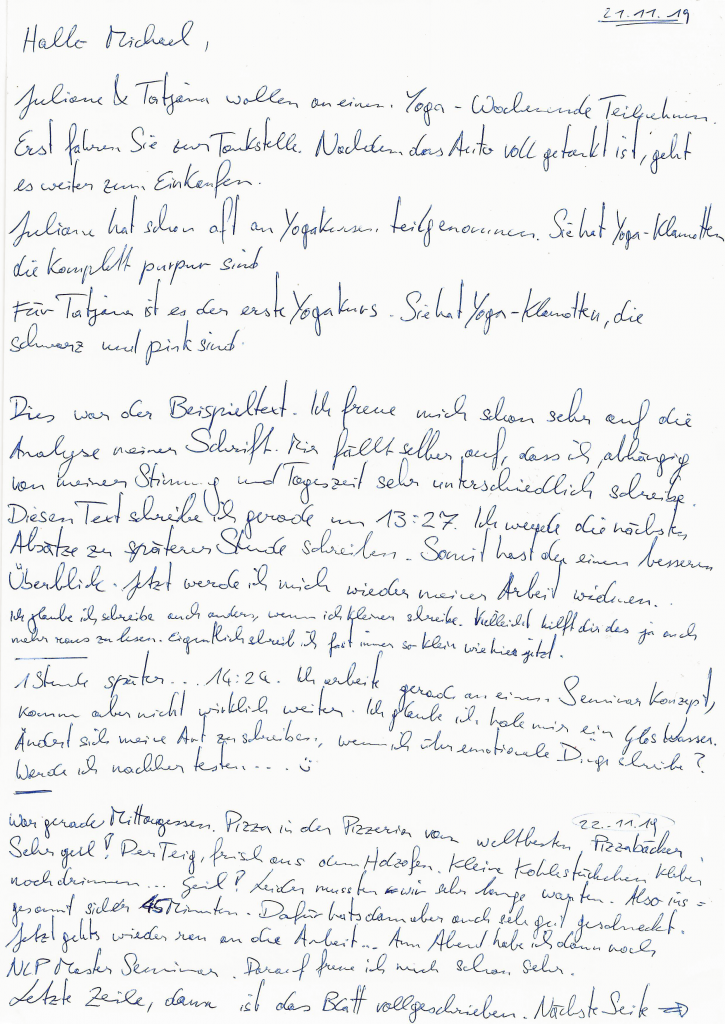 21.11.19
Hallo Michael,
Juliane & Tatjana wollen an einem Yoga-Wochenende Teilnehmen.
Erst fahren Sie zur Tankstelle. Nachdem das Auto voll getankt ist, geht
es weiter zum Einkaufen.
Juliane hat schon oft an Yogakursen teilgenommen. Sie hat Yoga-Klamotten
die komplett purpur sind
Für Tatjana ist es der erste Yogakurs. Sie hat Yoga-Klamotten, die
schwarz und pink sind.
Dies war der Beispieltext. Ich freue mich schon sehr auf die
Analyse meiner Schrift. Mir fällt selber auf, dass ich, abhängig
von meiner Stimmung und Tageszeit sehr unterschiedlich schreibe.
Diesen Text schreibe ich gerade um 13:27. Ich werde die nächsten
Absätze zu späterer Stunde schreiben. Somit hast du einen besseren
Überblick. Jetzt werde ich mich wieder meiner Arbeit widmen.
Ich glaube ich schreibe auch anders, wenn ich kleiner schreibe. Vielleicht hilft dir das ja auch
mehr raus zu lesen. Eigentlich schreib ich fast immer so klein wie hier jetzt.
1 Stunde später... 14:29. Ich arbeite gerade an einem Seminar Konzept,
komme aber nicht wirklich weiter. Ich glaube ich hole mir ein Glas Wasser.
Ändert sich meine Art zu schreiben, wenn ich über emotionale Dinge schreibe?
Werde ich nachher testen.... ü
22.11.19
War gerade Mittagessen. Pizza in der Pizzeria vom weltbesten Pizzabäcker.
Sehr geil! Der Teig, frisch aus dem Holzofen. Kleine Kohlestückchen kleben
noch drinnen... Geil! Leider mussten wir sehr lange warten. Also ins=
gesamt sicher 45 Minuten. Dafür hats dann aber auch sehr gut geschmeckt.
Jetzt gehts wieder ran an die Arbeit... Am Abend habe ich dann noch
NLP Master Seminar. Darauf freue ich mich schon sehr.
Letzte Zeile, dann ist das Blatt vollgeschrieben. Nächste Seite ⇒